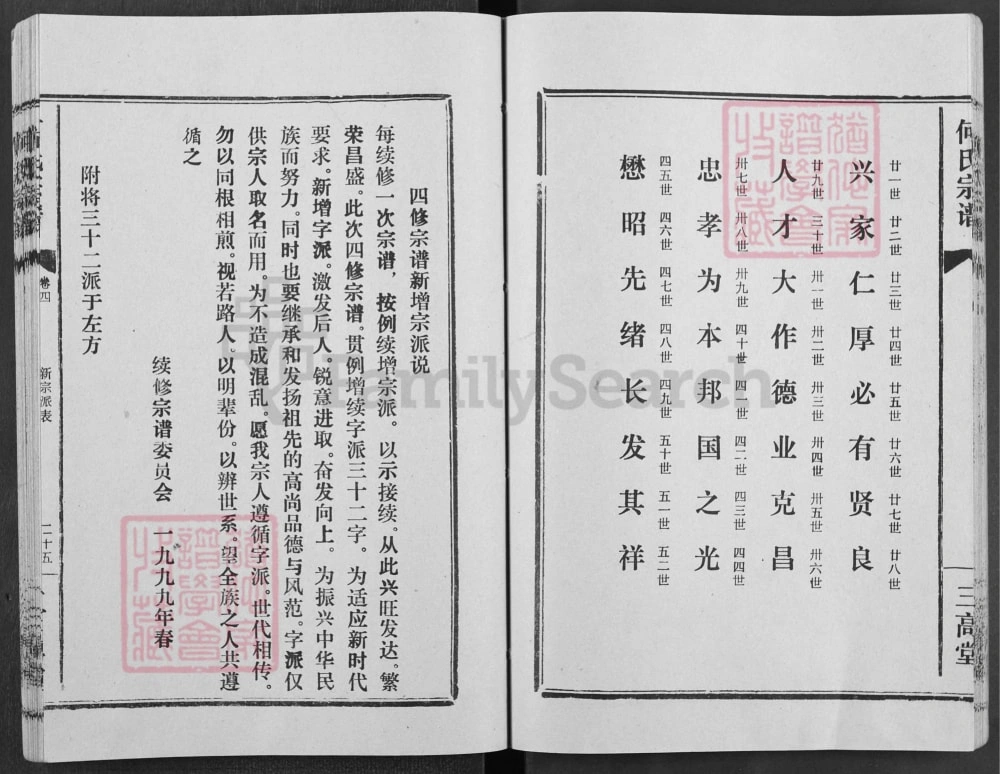 何氏宗谱
三高堂
廿一世 廿二世 廿三世 廿四世 廿五世 廿六世 廿七世 廿八世
兴家仁厚必有贤良
廿九世 三十世 卅一世 卅二世 卅三世 卅四世 卅五世 卅六世
人才大作德业克昌
卅七世 卅八世 卅九世 四十世 四一世 四二世 四三世 四四世
忠孝为本邦国之光
四五世 四六世 四七世 四八世 四九世 五十世 五一世 五二世
懋昭先绪长发其祥
四修宗谱新增宗派说
每续修一次宗谱,按例续增宗派。以示接续。从此兴旺发达。繁
荣昌盛。此次四修宗谱。贯例增续字派三十二字。为适应新时代
要求。新增字派。激发后人。锐意进取。奋发向上。为振兴中华民
族而努力。同时也要继承和发扬祖先的高尚品德与风范。字派仅
供宗人取名而用。为不造成混乱。愿我宗人遵循字派。世代相传。
勿以同根相煎。视若路人。以明辈份。以辨世系。望全族之人共遵
循之
续修宗谱委员会 一九九九年春
附将三十二派于左方
卷四
新宗派表
二十五
FamilySearch